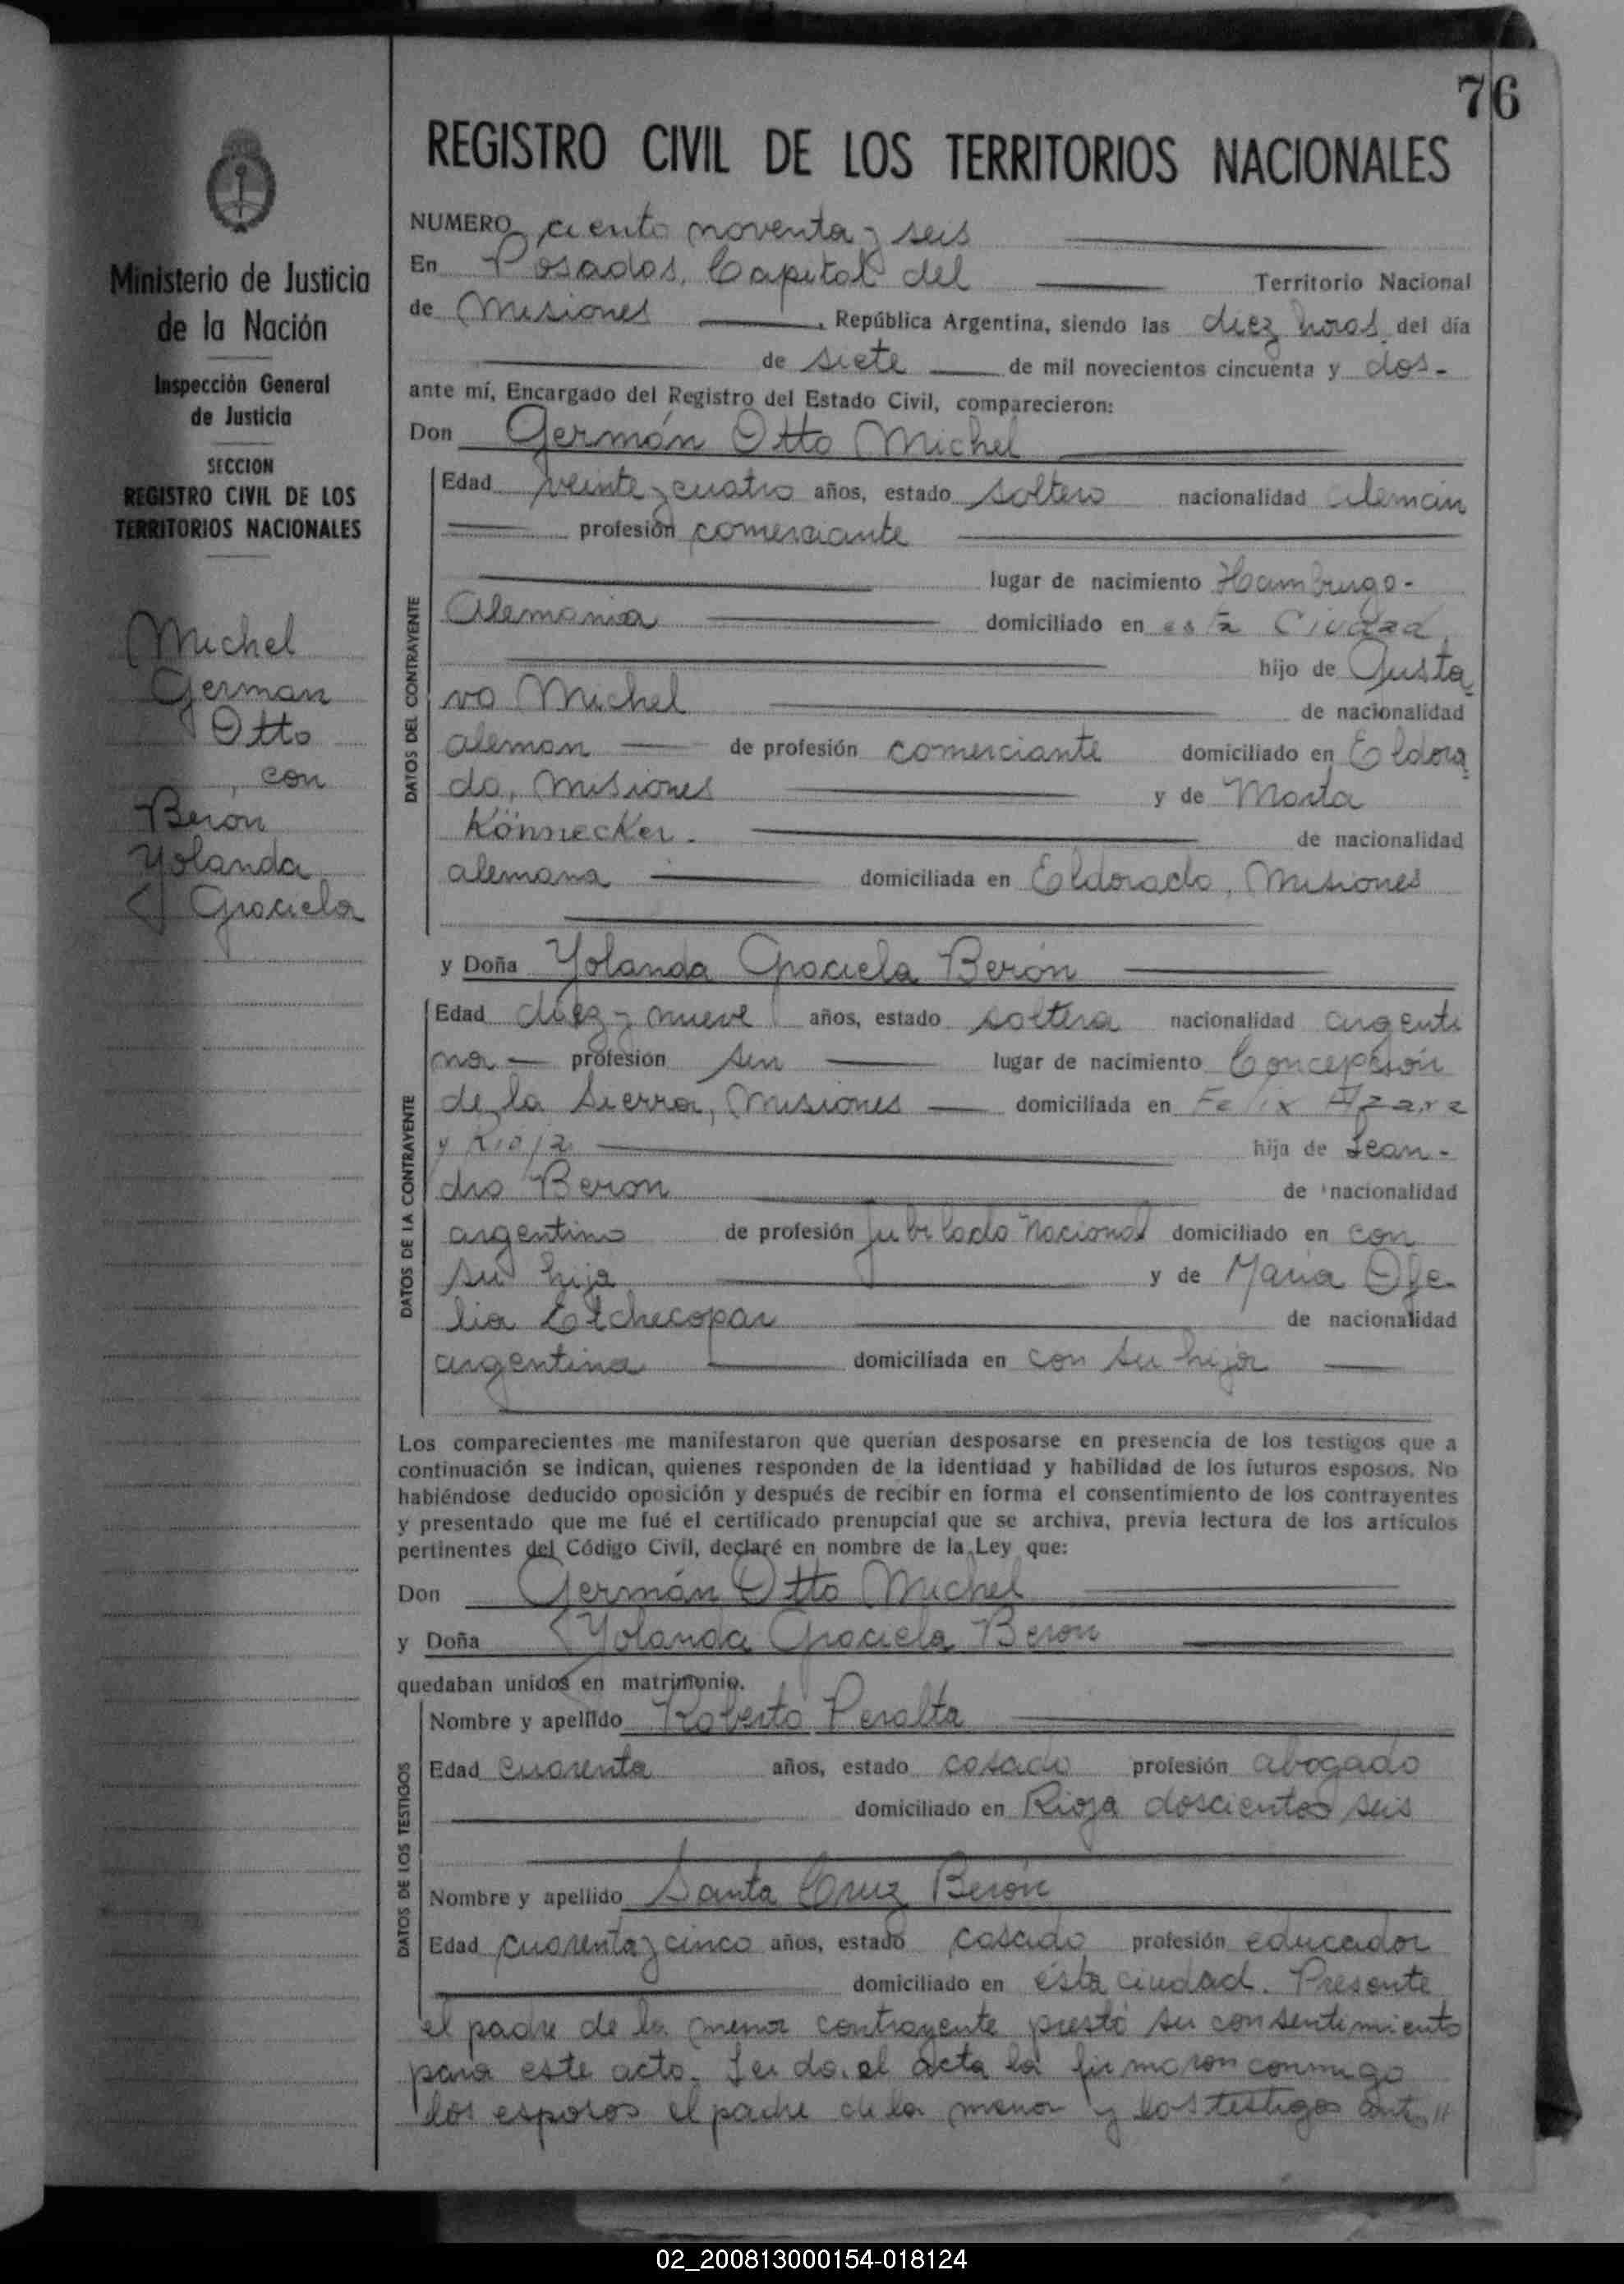 76
REGISTRO CIVIL DE LOS TERRITORIOS NACIONALES
Ministerio de Justicia
de la Nación
Inspección General
de Justicia
SECCION
REGISTRO CIVIL DE LOS
TERRITORIOS NACIONALES
Michel
German
Otto
con
Berón
Yolanda
Graciela
NUMERO ciento noventa y seis
En Posadas, Capital del Territorio Nacional
de Misiones, República Argentina, siendo las diez horas del día
de siete de mil novecientos cincuenta y dos-
ante mí, Encargado del Registro del Estado Civil, comparecieron:
Don Germán Otto Michel
DATOS DEL CONTRAYENTE
Edad veinte y cuatro años, estado soltero nacionalidad alemán
profesión comerciante
lugar de nacimiento Hamburgo-
Alemania domiciliado en esta Ciudad,
hijo de Gusta
vo Michel de nacionalidad
aleman de profesión comerciante domiciliado en Eldora
do, Misiones y de Marta
Könnecker. de nacionalidad
alemana domiciliada en Eldorado, Misiones
y Doña Yolanda Graciela Berón
DATOS DE LA CONTRAYENTE
Edad diez y nueve años, estado soltera nacionalidad argenti
na profesión sin lugar de nacimiento Concepción
de la Sierra, Misiones domiciliada en Felix Azara
y Rioja hija de Lean-
dro Beron de nacionalidad
argentino de profesión Jubilado Nacional domiciliado en con
su hija y de Maria Ofe-
lia Etchecopar de nacionalidad
argentina domiciliada en con su hija
Los comparecientes me manifestaron que querían desposarse en presencia de los testigos que a
continuación se indican, quienes responden de la identidad y habilidad de los futuros esposos. No
habiéndose deducido oposición y después de recibir en forma el consentimiento de los contrayentes
y presentado que me fué el certificado prenupcial que se archiva, previa lectura de los artículos
pertinentes del Código Civil, declaré en nombre de la Ley que:
Don Germán Otto Michel
y Doña Yolanda Graciela Beron
quedaban unidos en matrimonio.
DATOS DE LOS TESTIGOS
Nombre y apellido Roberto Peralta
Edad cuarenta años, estado casado profesión abogado
domiciliado en Rioja doscientos seis
Nombre y apellido Santa Cruz Berón
Edad cuarenta y cinco años, estado casado profesión educador
domiciliado en ésta ciudad. Presente
el padre de la menor contrayente prestó su consentimiento
para este acto. Leida el acta la firmaron conmigo
los esposos el padre de la menor y los testigos antes//
02_200813000154-018124